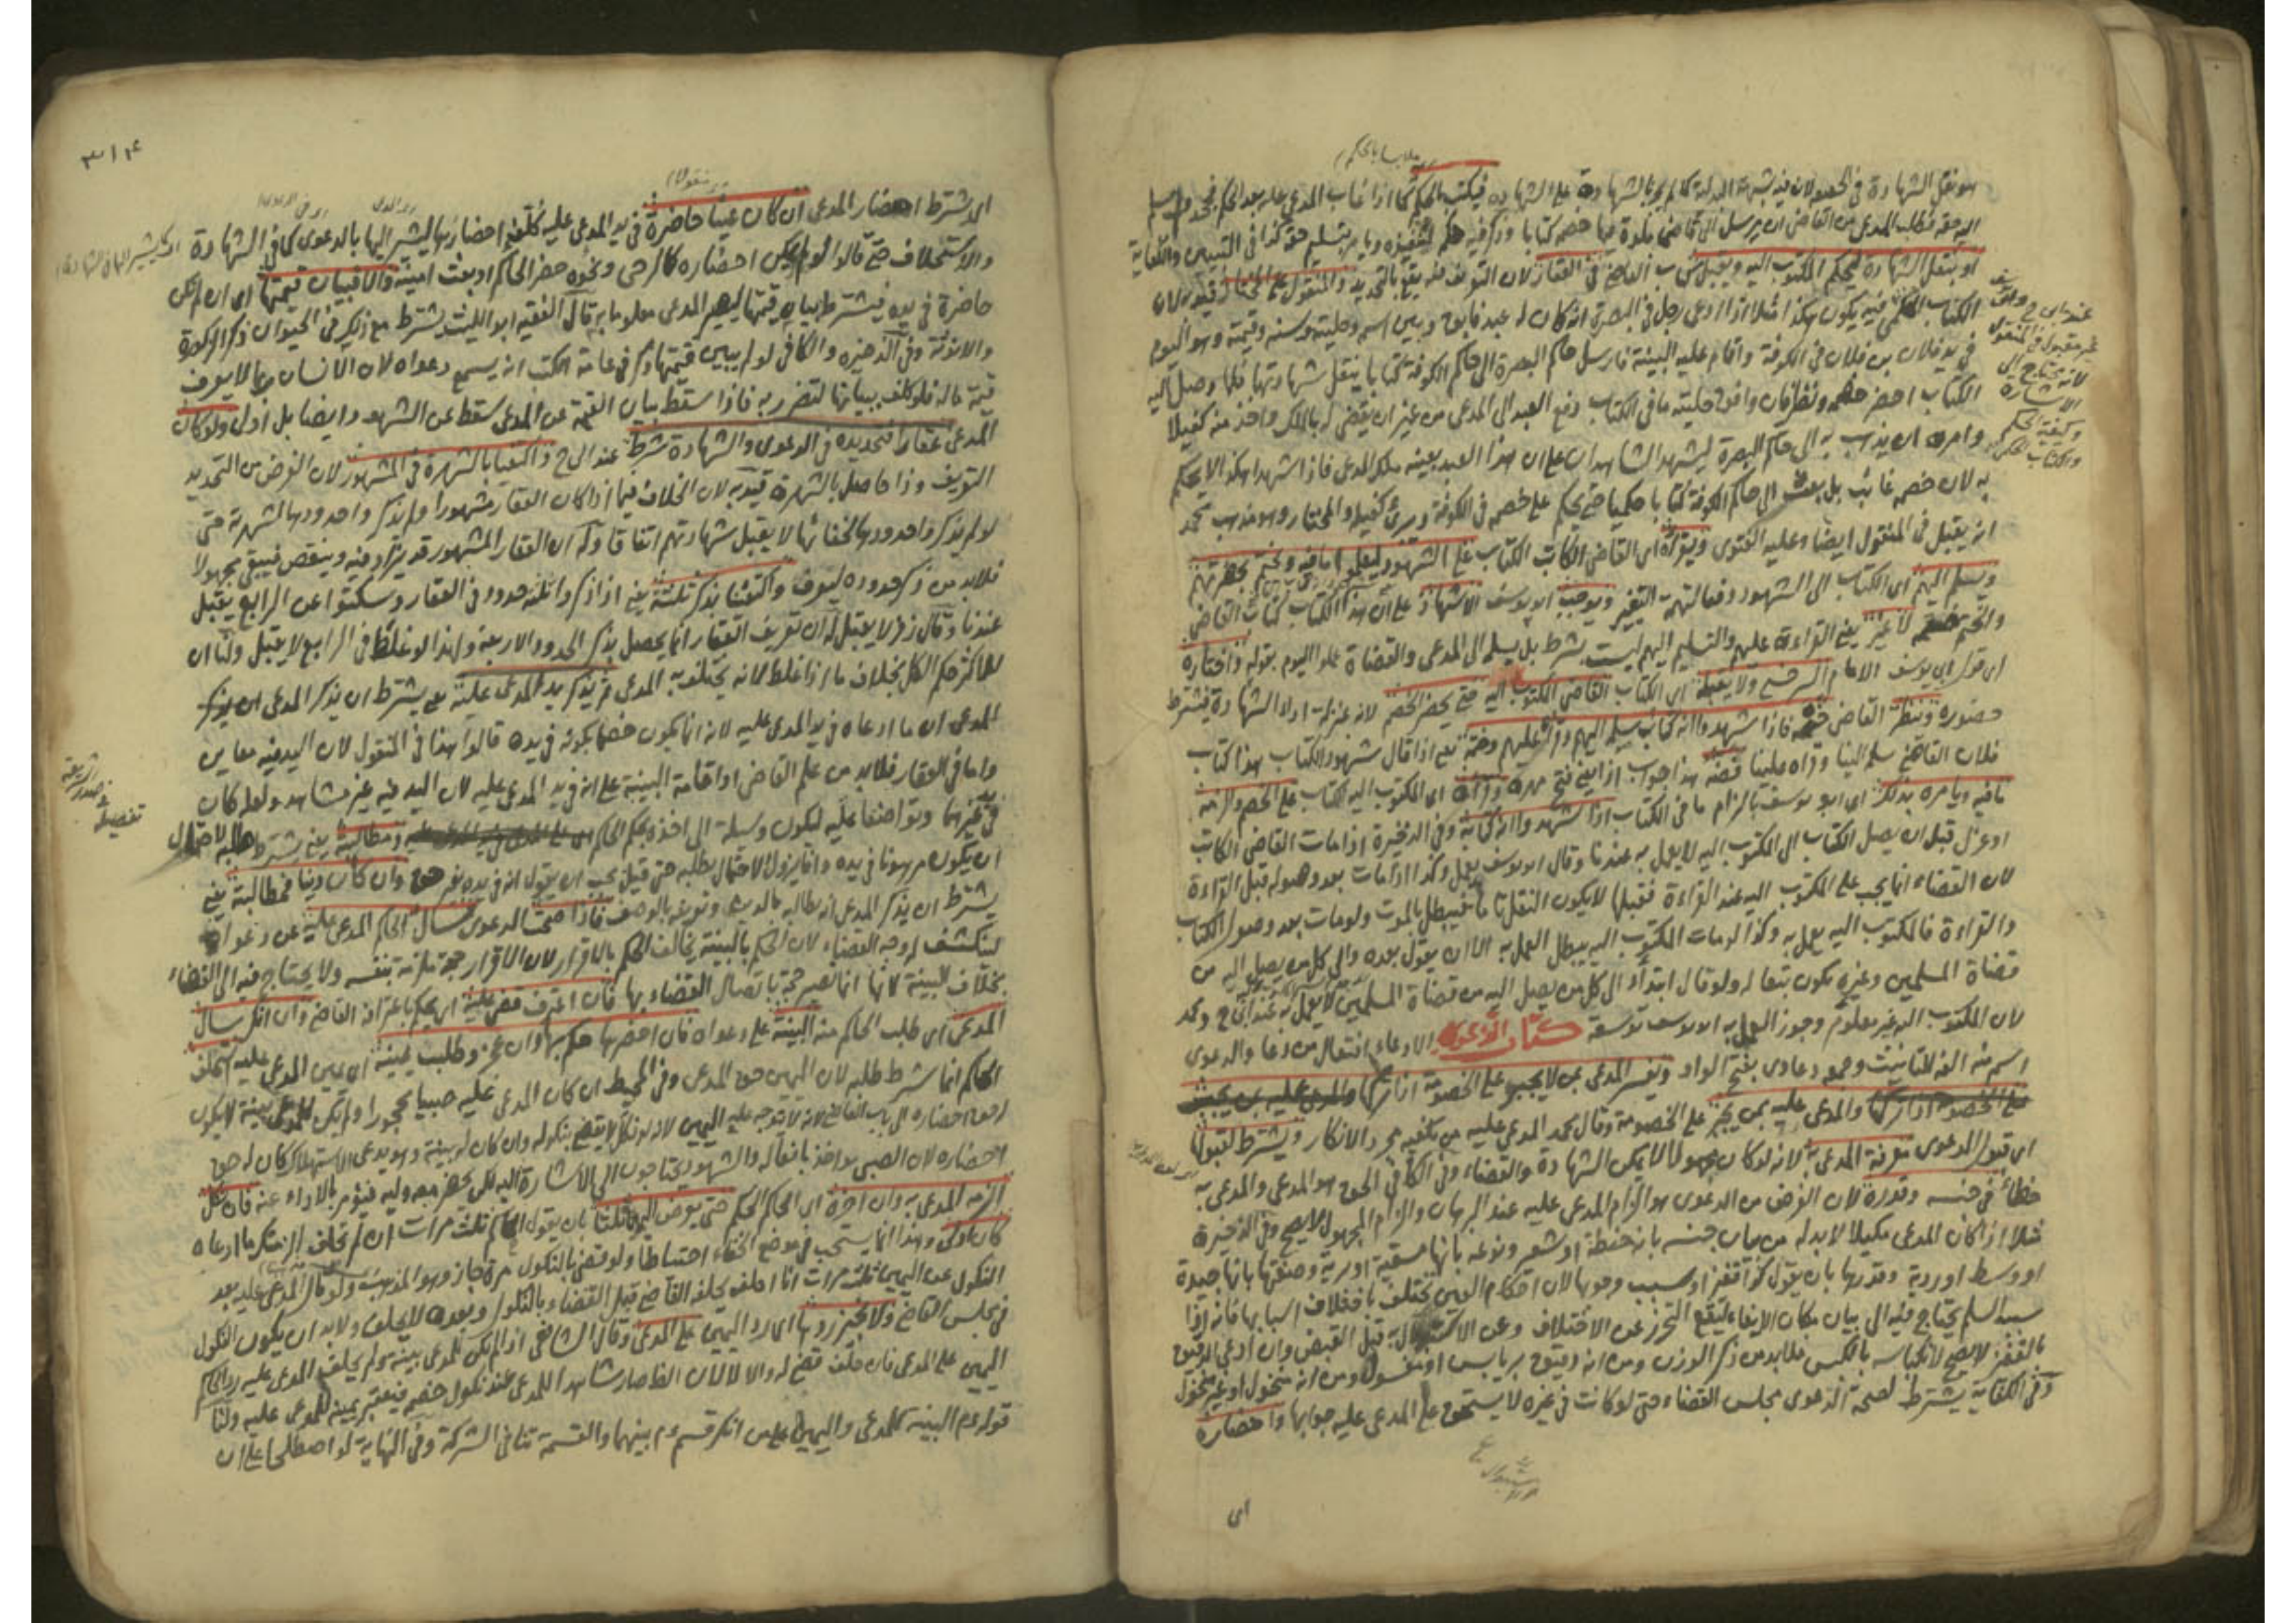 هو نقل الشهادة في الحقيقة لان فيه شبهة البدلية كالشهادة على الشهادة فيكتب بالحكم كما اذا غاب المدعى عليه بعد الحكم
اليه حقه فطلب المدعي من القاضي ان يرسل الى قاضي بلدة فيها خصمه كتابا وذكر فيه حكمه لتنفيذه ويأمر بتسليم حقه كذا في التبيين والكفاية
او بنقل الشهادة ليحكم المكتوب اليه ويقبل كتاب القاضي في العقار لان التعريف فيه يقع بالتحديد والمنقول على المختار
الكتاب الحكمي فيه يكون هكذا مثلا اذا ادعى رجل في البصرة انه كان له عبد فابق وبين اسمه وحليته وسنه وقيمته وهو اليوم
في يد فلان بن فلان في الكوفة واقام عليه البينة فارسل حاكم البصرة الى حاكم الكوفة كتابا بنقل شهادتها فلما وصل اليه
الكتاب احضر خصمه ونظر فان وافق حليته ما في الكتاب دفع العبد الى المدعي من غير ان يقضي له بالملك واخذ منه كفيلا
وامره ان يذهب به الى حاكم البصرة ليشهد الشاهدان على ان هذا العبد بعينه ملك المدعي فاذا شهدا هكذا لا يحكم
به لان خصمه غائب بل يبعث الى حاكم الكوفة كتابا حكميا حتى يحكم على خصمه في الكوفة ويبرئ كفيله والمختار وهو مذهب محمد
انه يقبل في المنقول ايضا وعليه الفتوى ويقرأه اى القاضي الكاتب الكتاب على الشهود ليعلموا ما فيه ويختم بحضرتهم
ويسلم اليهم اى الكتاب الى الشهود دفعا لتهمة التغيير ويوجب ابو يوسف الاشهاد على ان هذا الكتاب كتاب القاضي
والختم ختمه لا غير يعني القراءة عليهم والتسليم اليهم ليست بشرط بل يسلم الى المدعي والقضاة عملوا اليوم بقوله واختاره
اى قول ابي يوسف الامام السرخسي ولا يقبله اى الكتاب القاضي المكتوب اليه حتى يحضر الخصم لانه بمنزلة اداء الشهادة فيشترط
حضوره وينظر القاضي ختمه فاذا شهدوا انه كتاب سلمه اليهم وقرأ عليهم وختمه يعني اذا قال شهود الكتاب هذا كتاب
فلان القاضي سلمه الينا وقرأه علينا فضه هذا جواب اذا يعني فتح مهره وقرأه اى المكتوب اليه الكتاب على الخصم والزمه
ما فيه ويأمره بذلك اى ابو يوسف بالزام ما في الكتاب اذا شهدوا انه كتابه وفي الذخيرة اذا مات القاضي الكاتب
او عزل قبل ان يصل الكتاب الى المكتوب اليه لا يعمل به عندنا وقال ابو يوسف يعمل وكذا اذا مات بعد وصوله قبل القراءة
لان القضاء انما يجب على المكتوب اليه عند القراءة فقبلها لا يكون النقل تاما فيبطل بالموت ولو مات بعد وصول الكتاب
والقراءة فالمكتوب اليه يعمل به وكذا لو مات المكتوب اليه يبطل العمل به الا ان يقول بعده والى كل من يصل اليه من
قضاة المسلمين وغيره يكون تبعا له ولو قال ابتداء الى كل من يصل اليه من قضاة المسلمين لا يعمل به عند ابي ح ومحمد
لان المكتوب اليه غير معلوم وجوز العمل به ابو يوسف توسعة كتاب الدعوى الادعاء افتعال من دعا والدعوى
اسم منه الفه للتأنيث وجمعه دعاوى بفتح الواو ويفسر المدعي بمن لا يجبر على الخصومة اذا تركها والمدعى عليه بمن يجبر
على الخصومة اذا تركها والمدعى عليه بمن يجبر على الخصومة وقال محمد المدعى عليه من يكفيه مجرد الانكار ويشترط لقبولها
اى قبول الدعوى معرفة المدعى به لانه لو كان مجهولا لا يمكن الشهادة والقضاء وفي الكافي الحق هو المدعي والمدعى به
خطأ في جنسه وقدره لان الغرض من الدعوى هو الزام المدعى عليه عند البرهان والزام المجهول لا يصح وفي الذخيرة
مثلا اذا كان المدعى مكيلا لا بد له من بيان جنسه بانه حنطة او شعير ونوعه بانها سقية او برية وصفتها بانها جيدة
او وسط او ردية وقدرها بان يقول كذا قفيز او سبب وجوبها لان احكام الدين تختلف باختلاف اسبابها فانه اذا
بسبب السلم يحتاج فيه الى بيان مكان الايفاء ليقع التحرز عن الاختلاف وعن الاستبدال قبل القبض وان ادعى الدقيق
بالقفيز لا يصح لانكباسه بالكبس فلا بد من ذكر الوزن ومن انه دقيق بر يابس او مغسول ومن انه منخول او غير منخول
وفي الكفاية يشترط لصحة الدعوى مجلس القضاء حتى لو كانت في غيره لا يستحق على المدعى عليه جوابها واحضاره
اى
٣١٤
اى يشترط احضار المدعى ان كان عينا حاضرة في يد المدعى عليه كلف احضارها ليشير اليها بالدعوى كما في الشهادة
والاستحلاف حتى قالوا لو لم يمكن احضاره كالرحى ونحوه حضر الحاكم او بعث امينه والا فبيان قيمتها اى ان لم تكن
حاضرة في يده فيشترط بيان قيمتها ليصير المدعى معلوما به قال الفقيه ابو الليث يشترط مع ذلك في الحيوان ذكر الذكورة
والانوثة وفي الذخيرة والكافي لو لم يبين قيمتها ذكر في عامة الكتب انه يسمع دعواه لان الانسان ربما لا يعرف
قيمة ماله فلو كلف بيانها لتضرر به فاذا سقط بيان القيمة عن المدعي سقط عن الشهود وايضا بل اولى ولو كان
المدعى عقارا فتحديده في الدعوى والشهادة شرط عند ابي ح واكتفيا بالشهرة في المشهور لان الغرض من التحديد
التعريف وذا حاصل بالشهرة قيد به لان الخلاف فيما اذا كان العقار مشهورا ولم يذكروا حدودها لشهرته حتى
لو لم يذكروا حدودها لخفائها لا يقبل شهادتهم اتفاقا وله ان العقار المشهور قد يزاد فيه وينقص فيبقى مجهولا
فلا بد من ذكر حدوده ليعرف واكتفينا بذكر ثلثة يعني اذا ذكروا ثلثة حدود في العقار وسكتوا عن الرابع يقبل
عندنا وقال زفر لا يقبل له ان تعريف العقار انما يحصل بذكر الحدود الاربعة ولهذا لو غلط في الرابع لا يقبل ولنا ان
للاكثر حكم الكل بخلاف ما اذا غلط لانه يختلف به المدعى ثم يذكر يد المدعى عليه يعني يشترط ان يذكر المدعي
المدعي ان ما ادعاه في يد المدعى عليه لانه انما يكون خصما بكونه في يده قالوا هذا في المنقول لان اليد فيه معاين
واما في العقار فلا بد من علم القاضي او اقامة البينة على انه في يد المدعى عليه لان اليد فيه غير مشاهد ولعله كان
في يد غيرهما وتواضعا عليه ليكون وسيلة الى اخذه بحكم الحاكم ومطالبته يعني يشترط طلبه لاحتمال
ان يكون مرهونا في يده وانما يزول الاحتمال بطلبه حتى قيل يجب ان يقول انه في يده بغير حق وان كان دينا فمطالبته يعني
يشترط ان يذكر المدعي انه يطالبه بالدين وتعريفه بالوصف فاذا صحت الدعوى سأل الحاكم المدعى عليه عن دعواه
لينكشف له وجه القضاء لان الحكم بالبينة يخالف الحكم بالاقرار لان الاقرار حجة ملزمة بنفسه ولا يحتاج فيه الى القضاء
بخلاف البينة لانها انما تصير حجة باتصال القضاء بها فان اعترف قضى عليه اى يحكم باعترافه القاضي وان انكر سأل
المدعي اى طلب الحاكم منه البينة على دعواه فان احضرها حكم بها وان عجز وطلب يمينه اى يمين المدعى عليه استحلفه
الحاكم انما شرط طلبه لان اليمين حق المدعي وفي المحيط ان كان المدعى عليه صبيا محجورا ولم تكن للمدعي بينة لا يكون
له حق احضاره الى باب القاضي لانه لا يتوجه عليه اليمين لانه لو نكل لا يقضى بنكوله وان كان له بينة وهو يدعي الاستهلاك كان له حق
احضاره لان الصبي مؤاخذ بافعاله والشهود يحتاجون الى الاشارة اليه لكن يحضر معه وليه فيؤمر بالاداء عنه فان نكل
الزمه المدعى به وان اخره اى الحاكم الحكم حتى يعرض اليمين ثلثا بان يقول الحاكم ثلث مرات ان لم تحلف الزمتك ما ادعاه
كان اولى وهذا انما يستحب في موضع الخفاء احتياطا ولو قضى بالنكول مرة جاز وهو المذهب ولو قال المدعى عليه بعد
النكول عن اليمين ثلث مرات انا احلف يحلفه القاضي قبل القضاء بالنكول وبعده لا يحلف ولا بد ان يكون النكول
في مجلس القاضي ولا نجيز ردها اى رد اليمين على المدعي وقال الشافعي اذا لم تكن للمدعي بينة ولم يحلف المدعى عليه رد الحاكم
اليمين على المدعي فان حلف قضى له والا لا لان الظاهر صار شاهدا للمدعي عند نكول خصمه فيعتبر يمينه كالمدعى عليه ولنا
قوله ع م البينة للمدعي واليمين على من انكر قسم ع م بينهما والقسمة تنافي الشركة وفي النهاية لو اصطلحا على ان